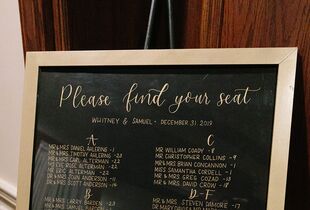 Please find your seat
WHITNEY & SAMUEL - DECEMBER 31, 2019
A
MR & MRS DANIEL AHLERING -1
MR & MRS TIMOTHY AHLERING -23
MR & MRS CARL ALTERMAN -22
MR EVE ROSE ALTERMAN -22
MR ERIC ALTERMAN -22
MR & MRS JOHN ANDERSON
MR & MRS SCOTT ANDERSON -14
B
MR & MRS LARRY BARDEN -23
MR & MRS SAMUEL BARDEN
C
MR WILLIAM COADY -8
MR CHRISTOPHER COLLINS -9
MR & MRS BRIAN CONCANNON -1
MISS SAMANTHA CORDELL -1
MR & MRS GREG COZAD -13
MR & MRS DAVID CROW -18
D-F
MR & MRS STEVEN DAMORE -17